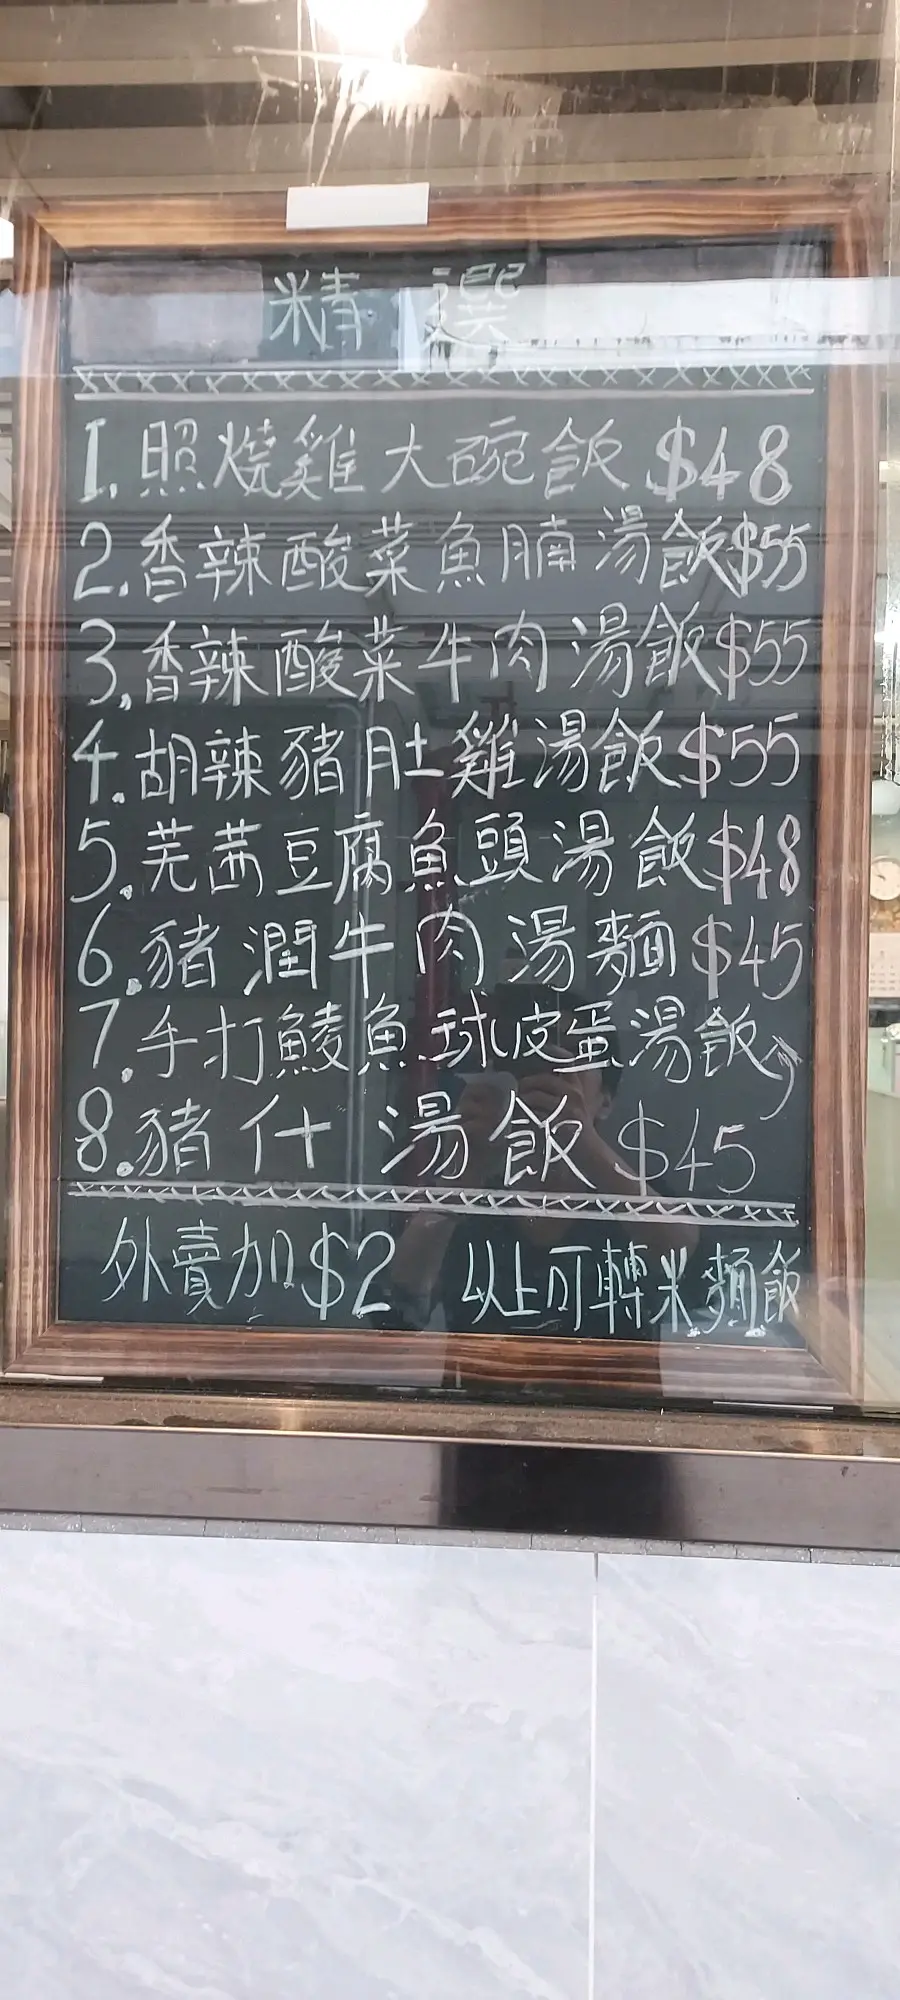 精選
1.照燒雞大碗飯 $48
2.香辣酸菜魚腩湯飯$55
3.香辣酸菜牛肉湯飯$55
4.胡辣豬肚雞湯飯$55
5.芫茜豆腐魚頭湯飯$48
6.豬潤牛肉湯麵$45
7.手打鯪魚球皮蛋湯飯
8.豬什湯飯 $45
外賣加$2 以上可轉米麵飯